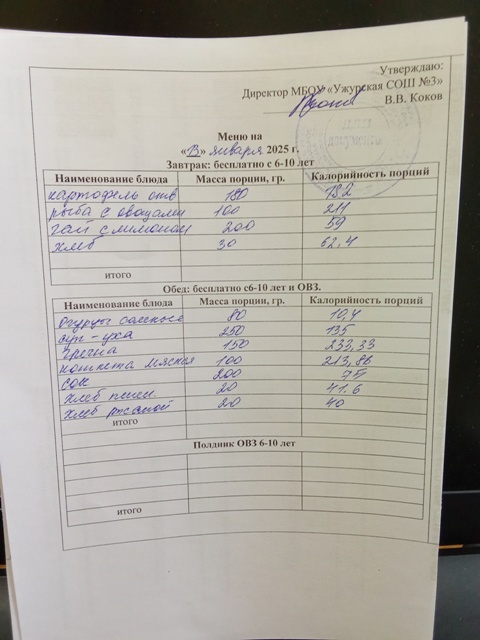 Утверждаю:
Директор МБОУ «Ужурская СОШ №3»
В.В. Коков
Меню на
«13» января 2025 г.
Завтрак: бесплатно с 6-10 лет
Наименование блюда Масса порции, гр. Калорийность порций
картофель отв 180 182
рыба с овощами 100 211
чай с лимоном 200 59
хлеб 30 62,4
итого
Обед: бесплатно с6-10 лет и ОВЗ.
Наименование блюда Масса порции, гр. Калорийность порций
Огурцы соленые 80 10,4
суп - уха 250 135
гречка 150 233,33
котлета мясная 100 213,86
сок 200 75
хлеб пшен. 20 41.6
хлеб ржаной 20 40
итого
Полдник ОВЗ 6-10 лет
итого